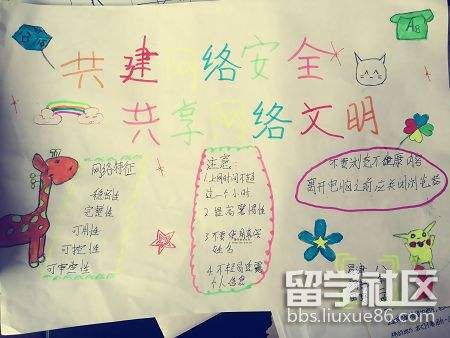 共建网络安全
共享网络文明
网络特征
稳密性
完整性
可用性
可控性
可审查性
注意
1.上网时间不超
过一个小时
2 提高警惕性
3 不要使用真实
姓名
4 不轻易泄露
个人信息
不要浏览不健康内容
离开电脑之前应关闭浏览器
AB
留学社区
bbs.liuxue86.com